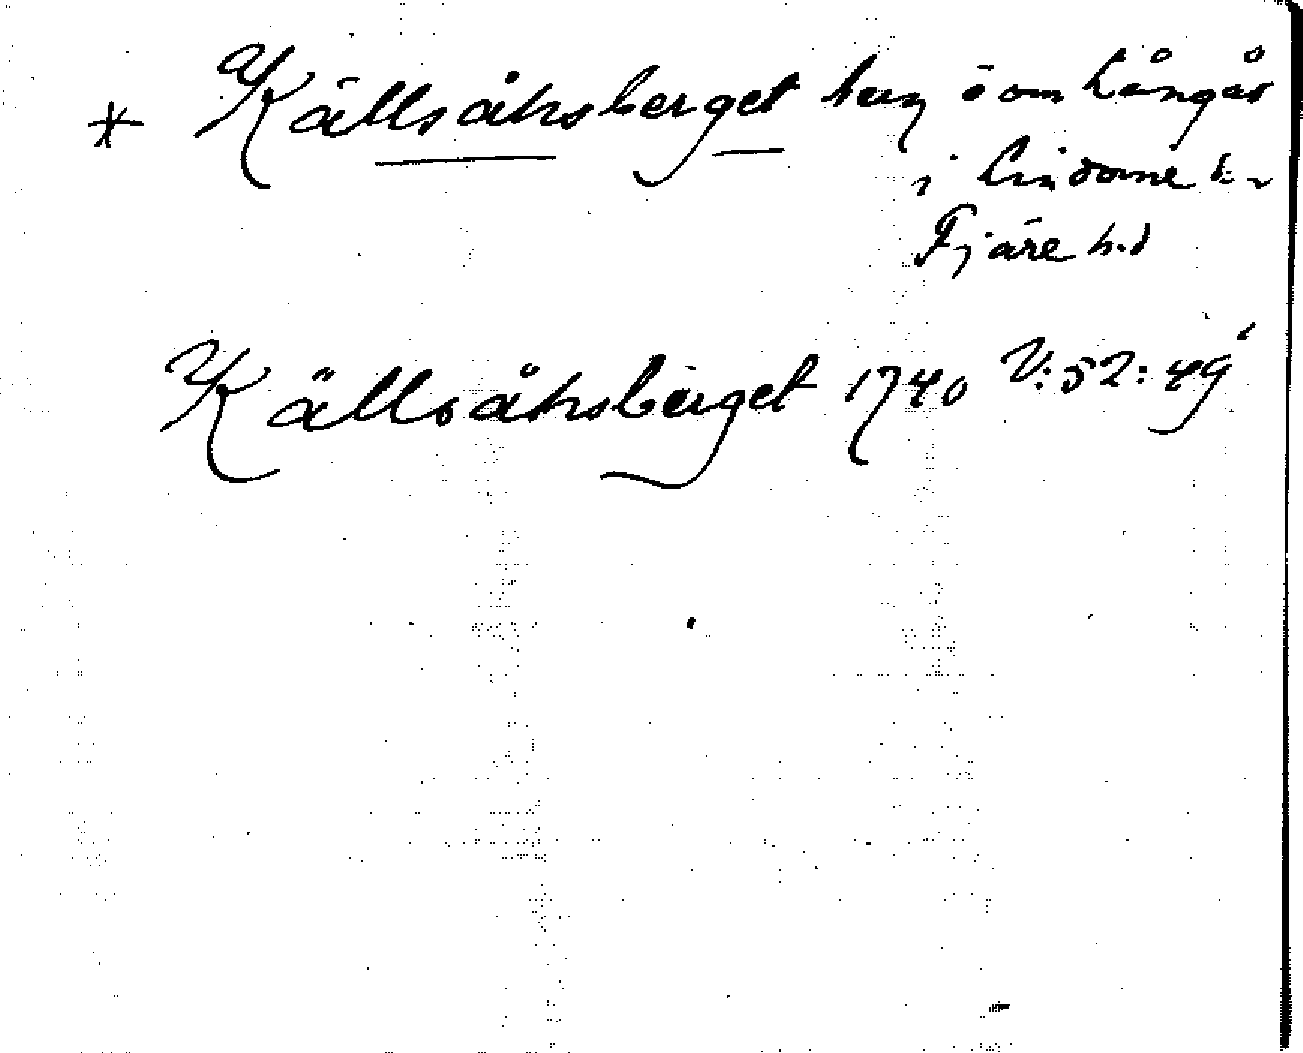 * Källsåhsberget berg ö om Långås
i Lindome k-r
Fjäre h.d
Källsåhsberget 1740 V:52:49